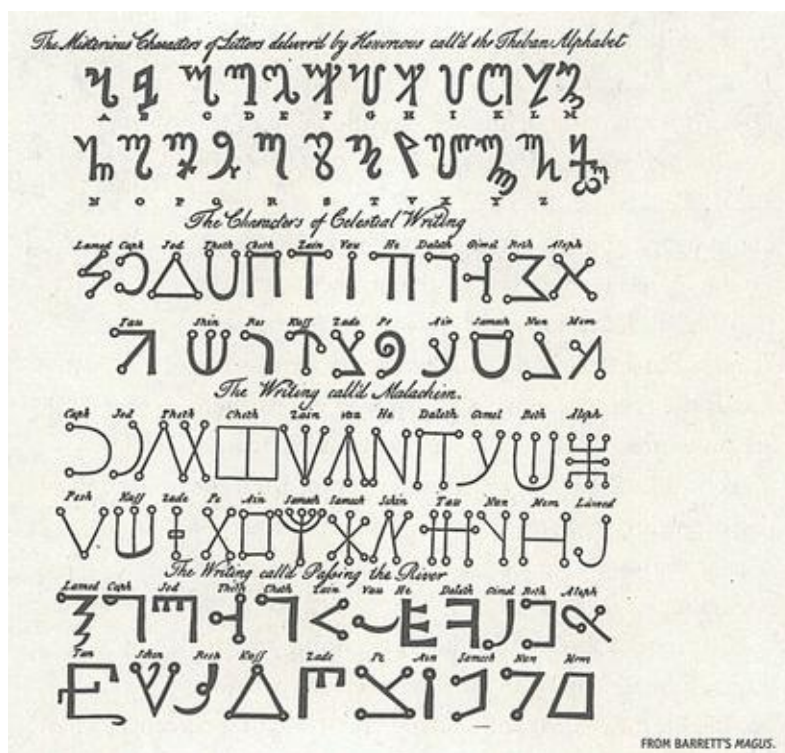 The Misterious Characters of Letters deliver'd by Honorious call'd the Theban Alphabet
A B C D E F G H I K L M
N O P Q R S T V X Y Z
The Characters of Celestial Writing
Lamed Caph Jod Theth Cheth Zain Vau He Daleth Gimel Beth Aleph
Tau Shin Res Kuff Zade Pe Ain Samech Nun Mem
The Writing call'd Malachim.
Caph Jod Theth Cheth Zain Vau He Daleth Gimel Beth Aleph
Resh Kuff Zade Pe Ain Samech Samech Schin Tau Nun Mem Lamed
The Writing call'd Paſsing the River
Lamed Caph Jod Theth Cheth Zain Vau He Daleth Gimel Beth Aleph
Tau Schin Resh Kuff Zade Pe Ain Samech Nun Mem
FROM BARRETT'S MAGUS.